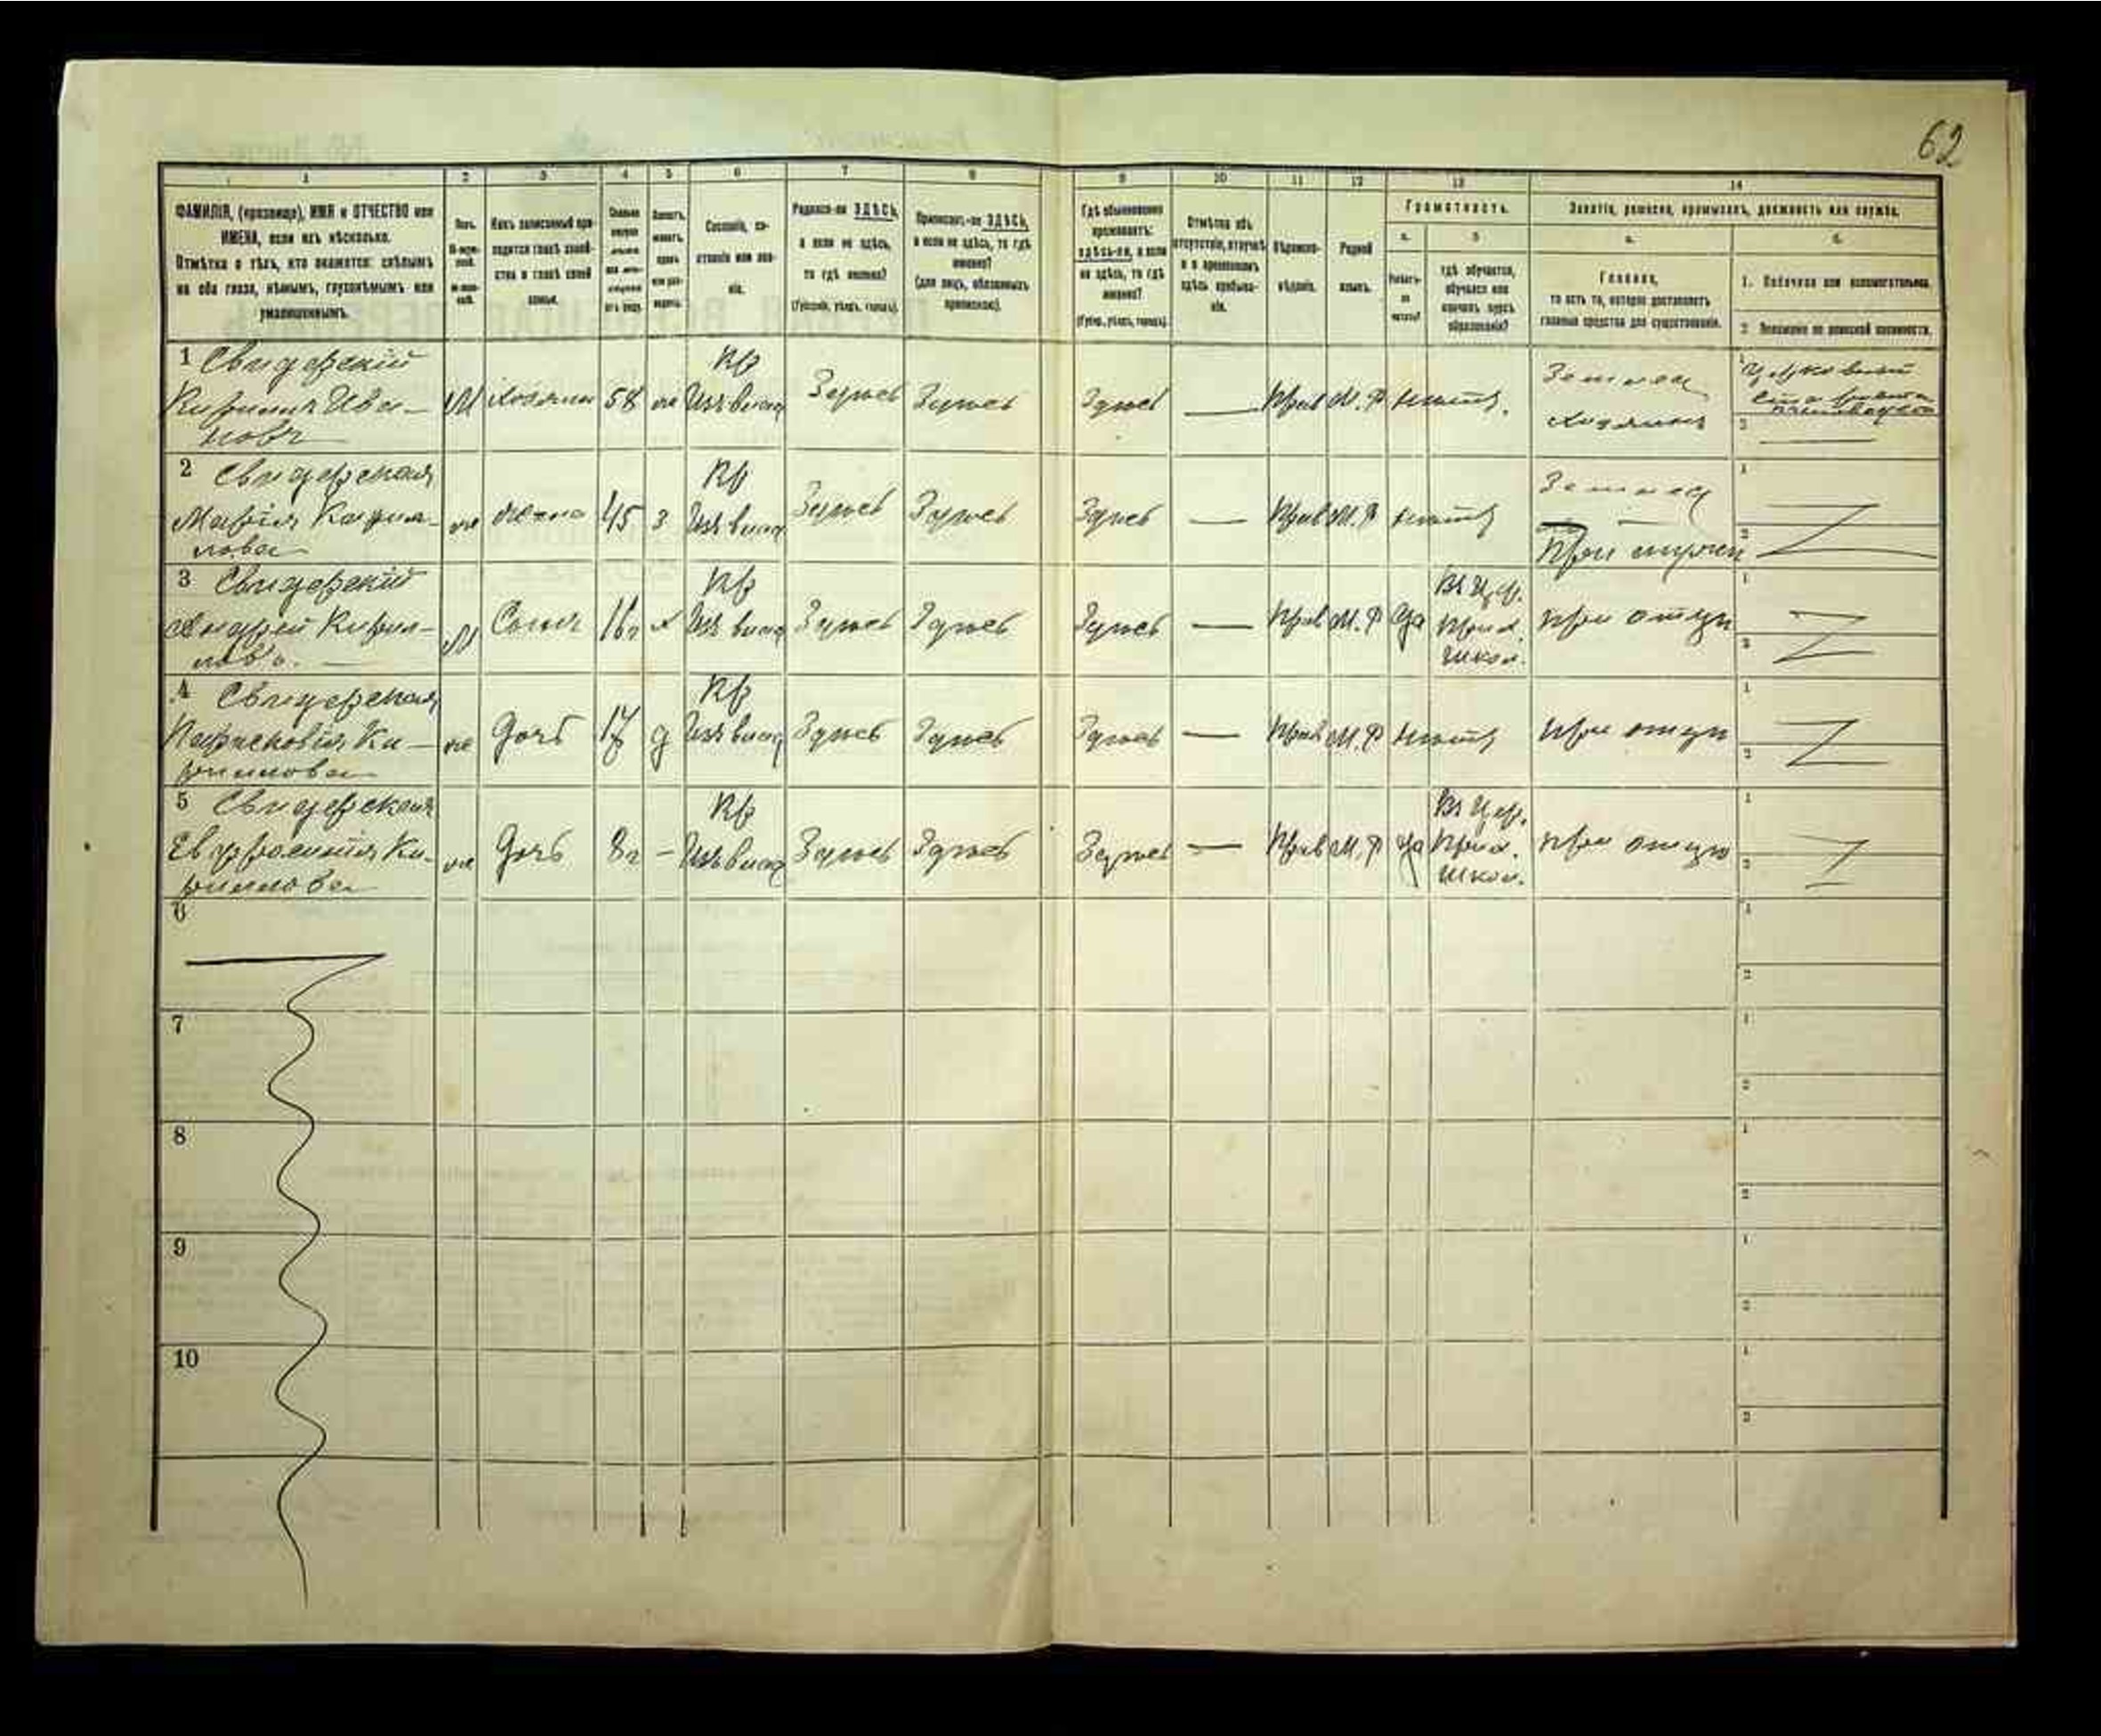 62
1 2 3 4 5 6 7 8 9 10 11 12 13 14
ФАМИЛІЯ, (прозвище), ИМЯ и ОТЧЕСТВО или
ИМЕНА, если ихъ нѣсколько.
Отмѣтка о тѣхъ, кто окажется: слѣпымъ
на оба глаза, нѣмымъ, глухонѣмымъ или
умалишеннымъ.
Полъ.
Какъ записанный при-
ходится главѣ хозяй-
ства и главѣ своей
семьи.
Сословіе, со-
стояніе или зва-
ніе.
Родился-ли ЗДѢСЬ,
а если не здѣсь,
то гдѣ именно?
(Губернія, уѣздъ, городъ).
Приписанъ-ли ЗДѢСЬ,
а если не здѣсь, то гдѣ
именно?
(для лицъ, обязанныхъ
припискою).
Гдѣ обыкновенно
проживаетъ:
здѣсь-ли, а если
не здѣсь, то гдѣ
именно?
(Губер., уѣздъ, городъ).
Отмѣтка объ
отсутствіи, отлучкѣ
и о временномъ
здѣсь пребыва-
ніи.
Вѣроиспо-
вѣданіе.
Родной
языкъ.
Грамотность.
а. б.
Умѣетъ-
ли
читать?
гдѣ обучается,
обучался или
кончилъ курсъ
образованія?
Занятіе, ремесло, промыселъ, должность или служба.
а. б.
Главное,
то есть то, которое доставляетъ
главныя средства для существованія.
1. Побочное или вспомогательное.
2. Положеніе по воинской повинности.
1 Свидерскій
Кириллъ Ива-
новъ
М Хозяинъ 58 ж Кр
Изъ влад Здѣсь Здѣсь Здѣсь — Прав М. Р нѣтъ. Землед
хозяинъ
1 Церковный
староста
2
2 Свидерская
Марія Кирил-
лова
ж жена 45 з Кр
Изъ влад Здѣсь Здѣсь Здѣсь — Прав М. Р нѣтъ Землед
При мужѣ
1
2
3 Свидерскій
Андрей Кирил-
ловъ. —
М Сынъ 16 х Кр
Изъ влад Здѣсь Здѣсь Здѣсь — Прав М. Р да Въ Цер.
Прих.
Школ.
при отцѣ
1
2
4 Свидерская
Ки-
риллова
ж дочь 17 д Кр
Изъ влад Здѣсь Здѣсь Здѣсь — Прав М. Р нѣтъ при отцѣ
1
2
5 Свидерская
Евфросинія Ки-
риллова
ж дочь 8 - Кр
Изъ влад Здѣсь Здѣсь Здѣсь — Прав М. Р да Въ Цер.
Прих.
Школ.
при отцѣ
1
2
6
1
2
7
1
2
8
1
2
9
1
2
10
1
2